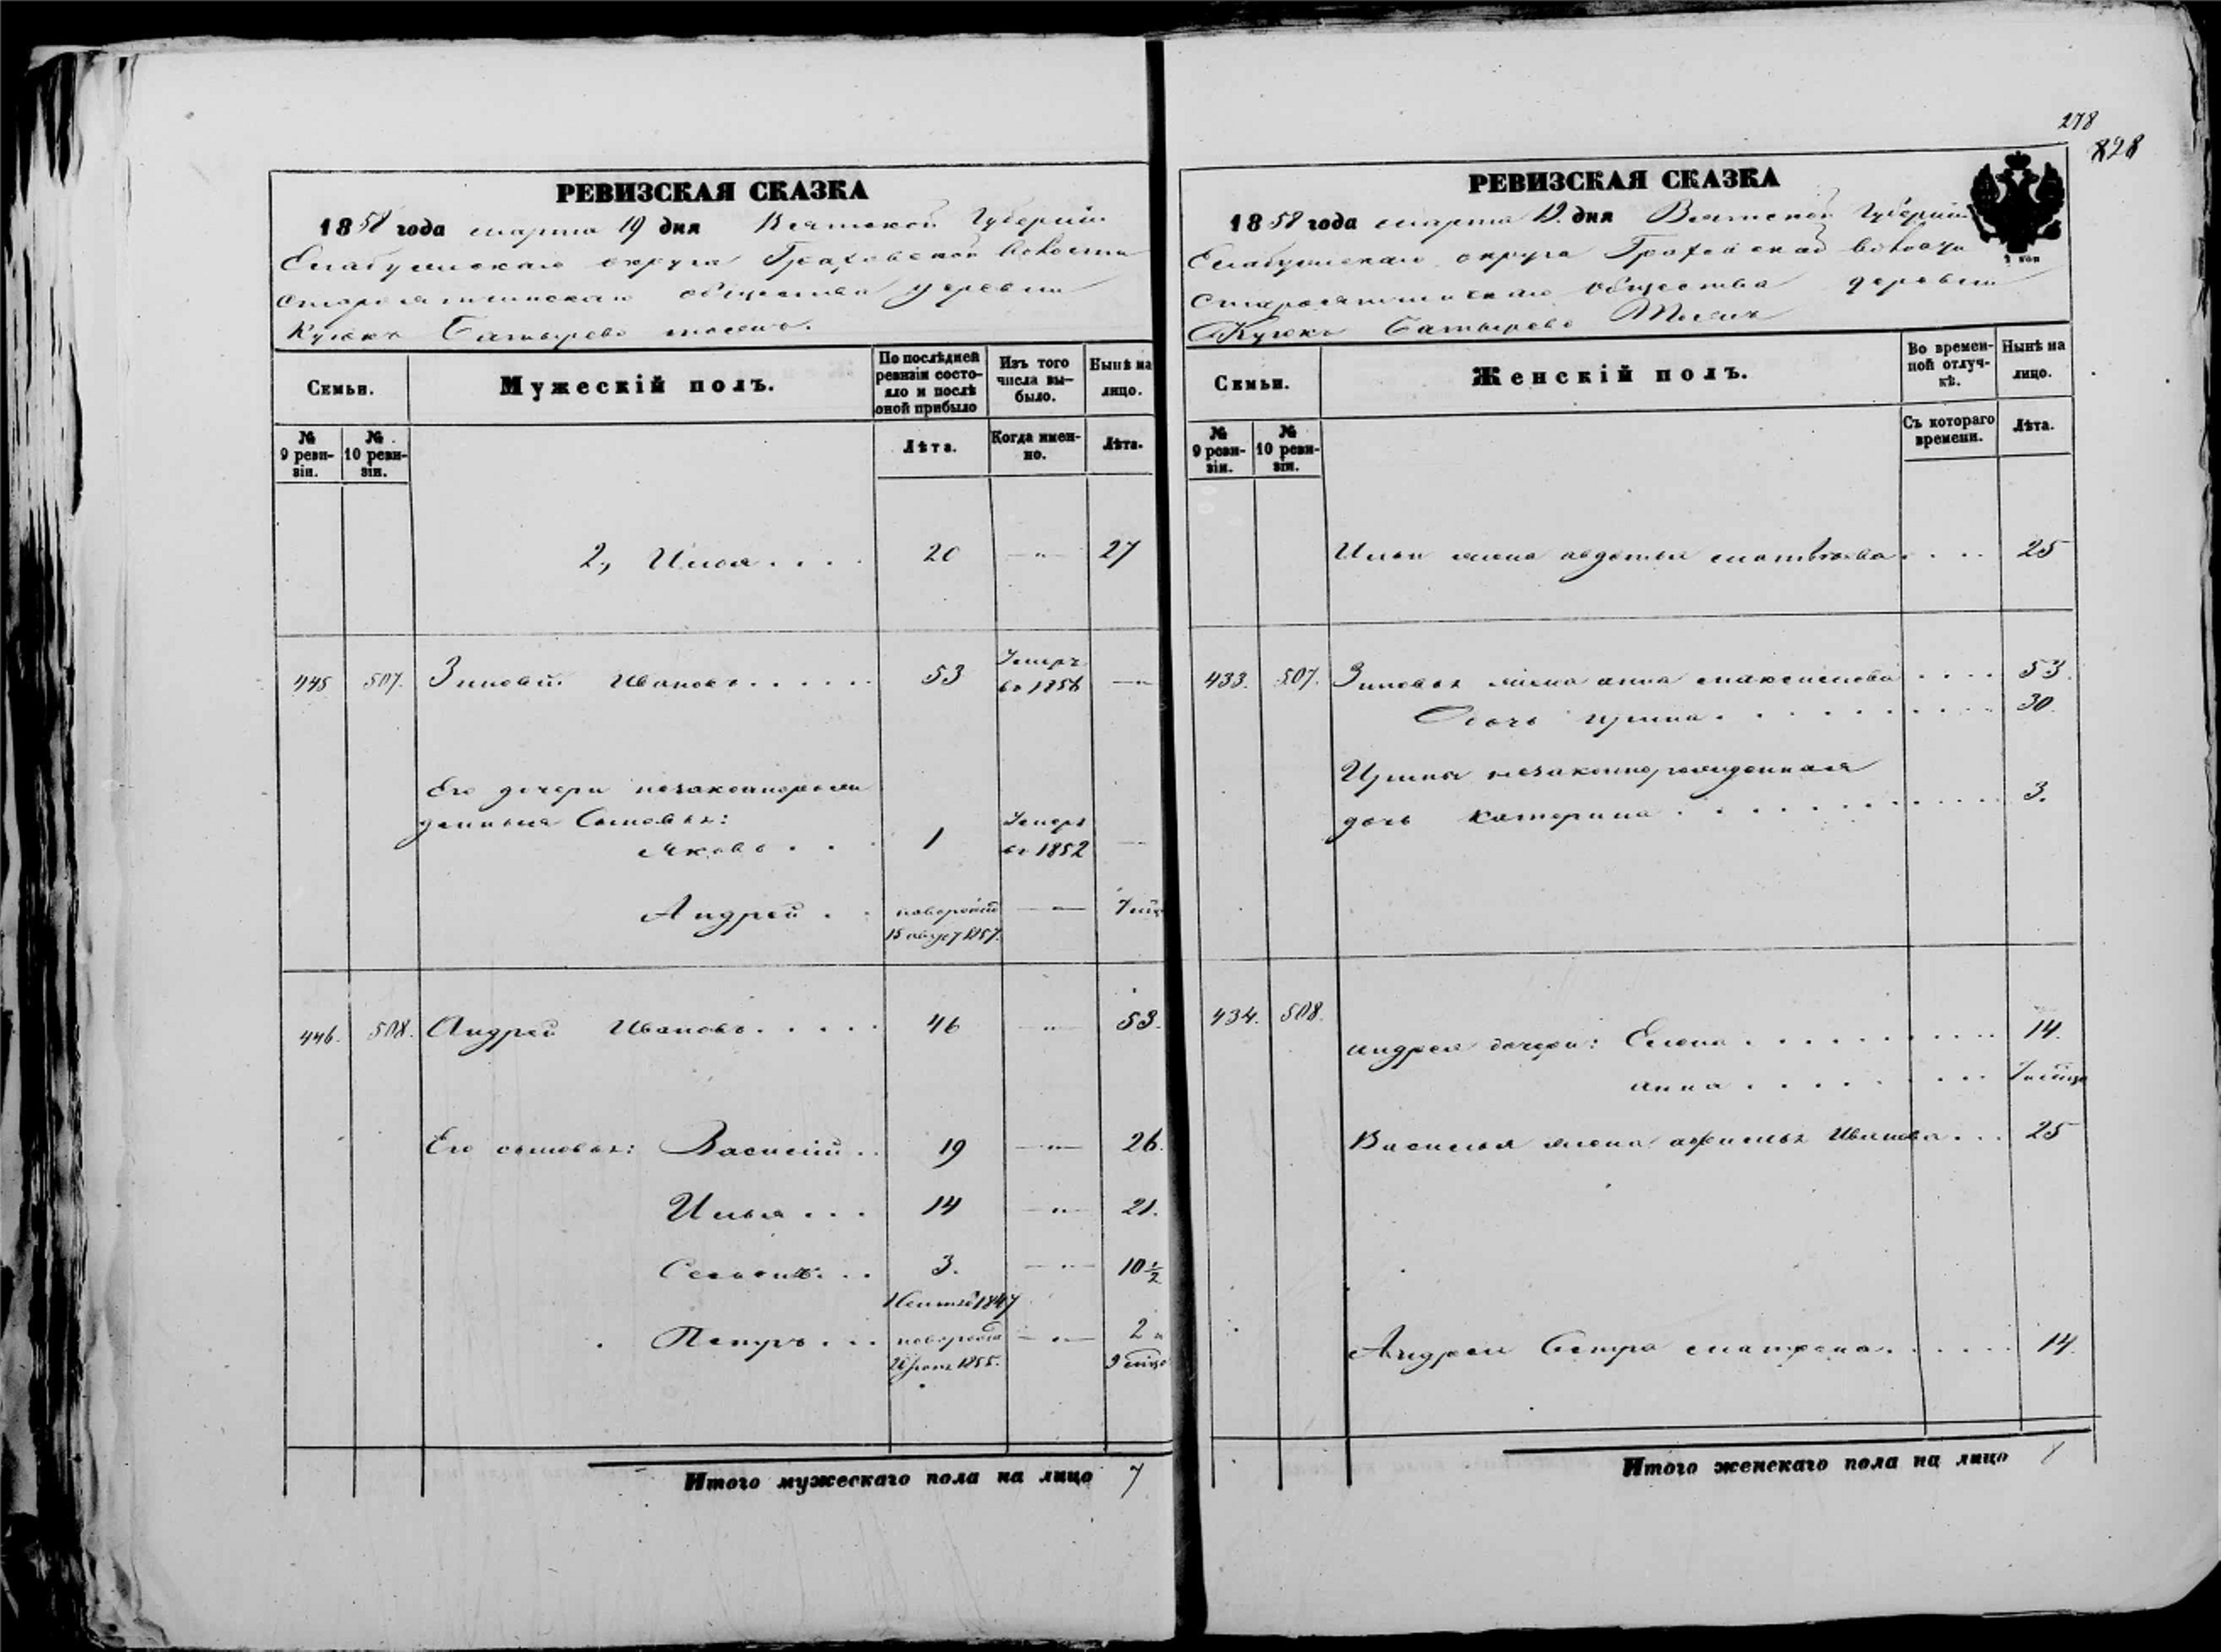 278
828
РЕВИЗСКАЯ СКАЗКА
1858 года марта 19 дня Вятской Губерніи
Елабужскаго округа Граховской волости
общества деревни
Кузюкъ Батырево тожъ.
Семьи.
Мужескій полъ.
По послѣдней ревизіи состояло и послѣ оной прибыло
Изъ того числа вы-было.
Нынѣ на лицо.
№ 9 реви-зіи.
№ 10 реви-зіи.
Лѣта.
Когда имен-но.
Лѣта.
2, Илья . . . . 20 — " — 27
445 507. Зиновій Ивановъ . . . . . . 53 Умеръ въ 1856 — " —
Его дочери незаконнорож
денныя Сыновья:
Яковъ . . . 1 Умеръ въ 1852 —
Андрей . . новорожд 15 август 1857. — " — 7 мѣс
446. 508. Андрей Ивановъ . . . . . 46 — " — 53.
Его сыновья: Василій . . 19 — " — 26.
Илья . . . 14 — " — 21.
Семенъ . . . 3. — " — 10 1/2
1847
Петръ . . . новорожд 1855. — " — 2 и 9 мѣсяц
Итого мужескаго пола на лицо 7
РЕВИЗСКАЯ СКАЗКА
1858 года марта 19. дня Вятской Губерніи
Елабужскаго округа Граховской волости
общества деревни
Кузюкъ Батырево Тожъ
Семьи.
Женскій полъ.
Во времен-ной отлуч-кѣ.
Нынѣ на лицо.
№ 9 реви-зіи.
№ 10 реви-зіи.
Съ котораго времени.
Лѣта.
Ильи жена авдотья матвѣева . . . . 25
433. 507. Зиновья жена анна максимова . . . . 53.
дочь ирина . . . . . . . . . 30.
Ирины незаконнорожденная
дочь катерина . . . . . . . . . . . 3.
434. 508. андрея дочери: Елена . . . . . . . . . 14.
анна . . . . . . . . 7 мѣсяц
Василья жена афимья Иванова . . . 25
Андрея Сестра матрена . . . . . . 14.
Итого женскаго пола на лицо